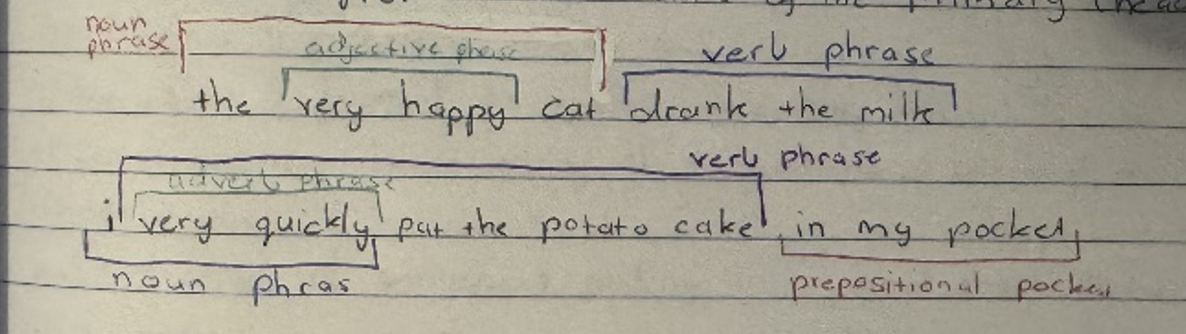 of the primary
noun
phrase
adjective phrase
verb phrase
the very happy cat drank the milk
verb phrase
advert phrase
i very quickly put the potato cake in my pocket
noun phras
prepositional pocket